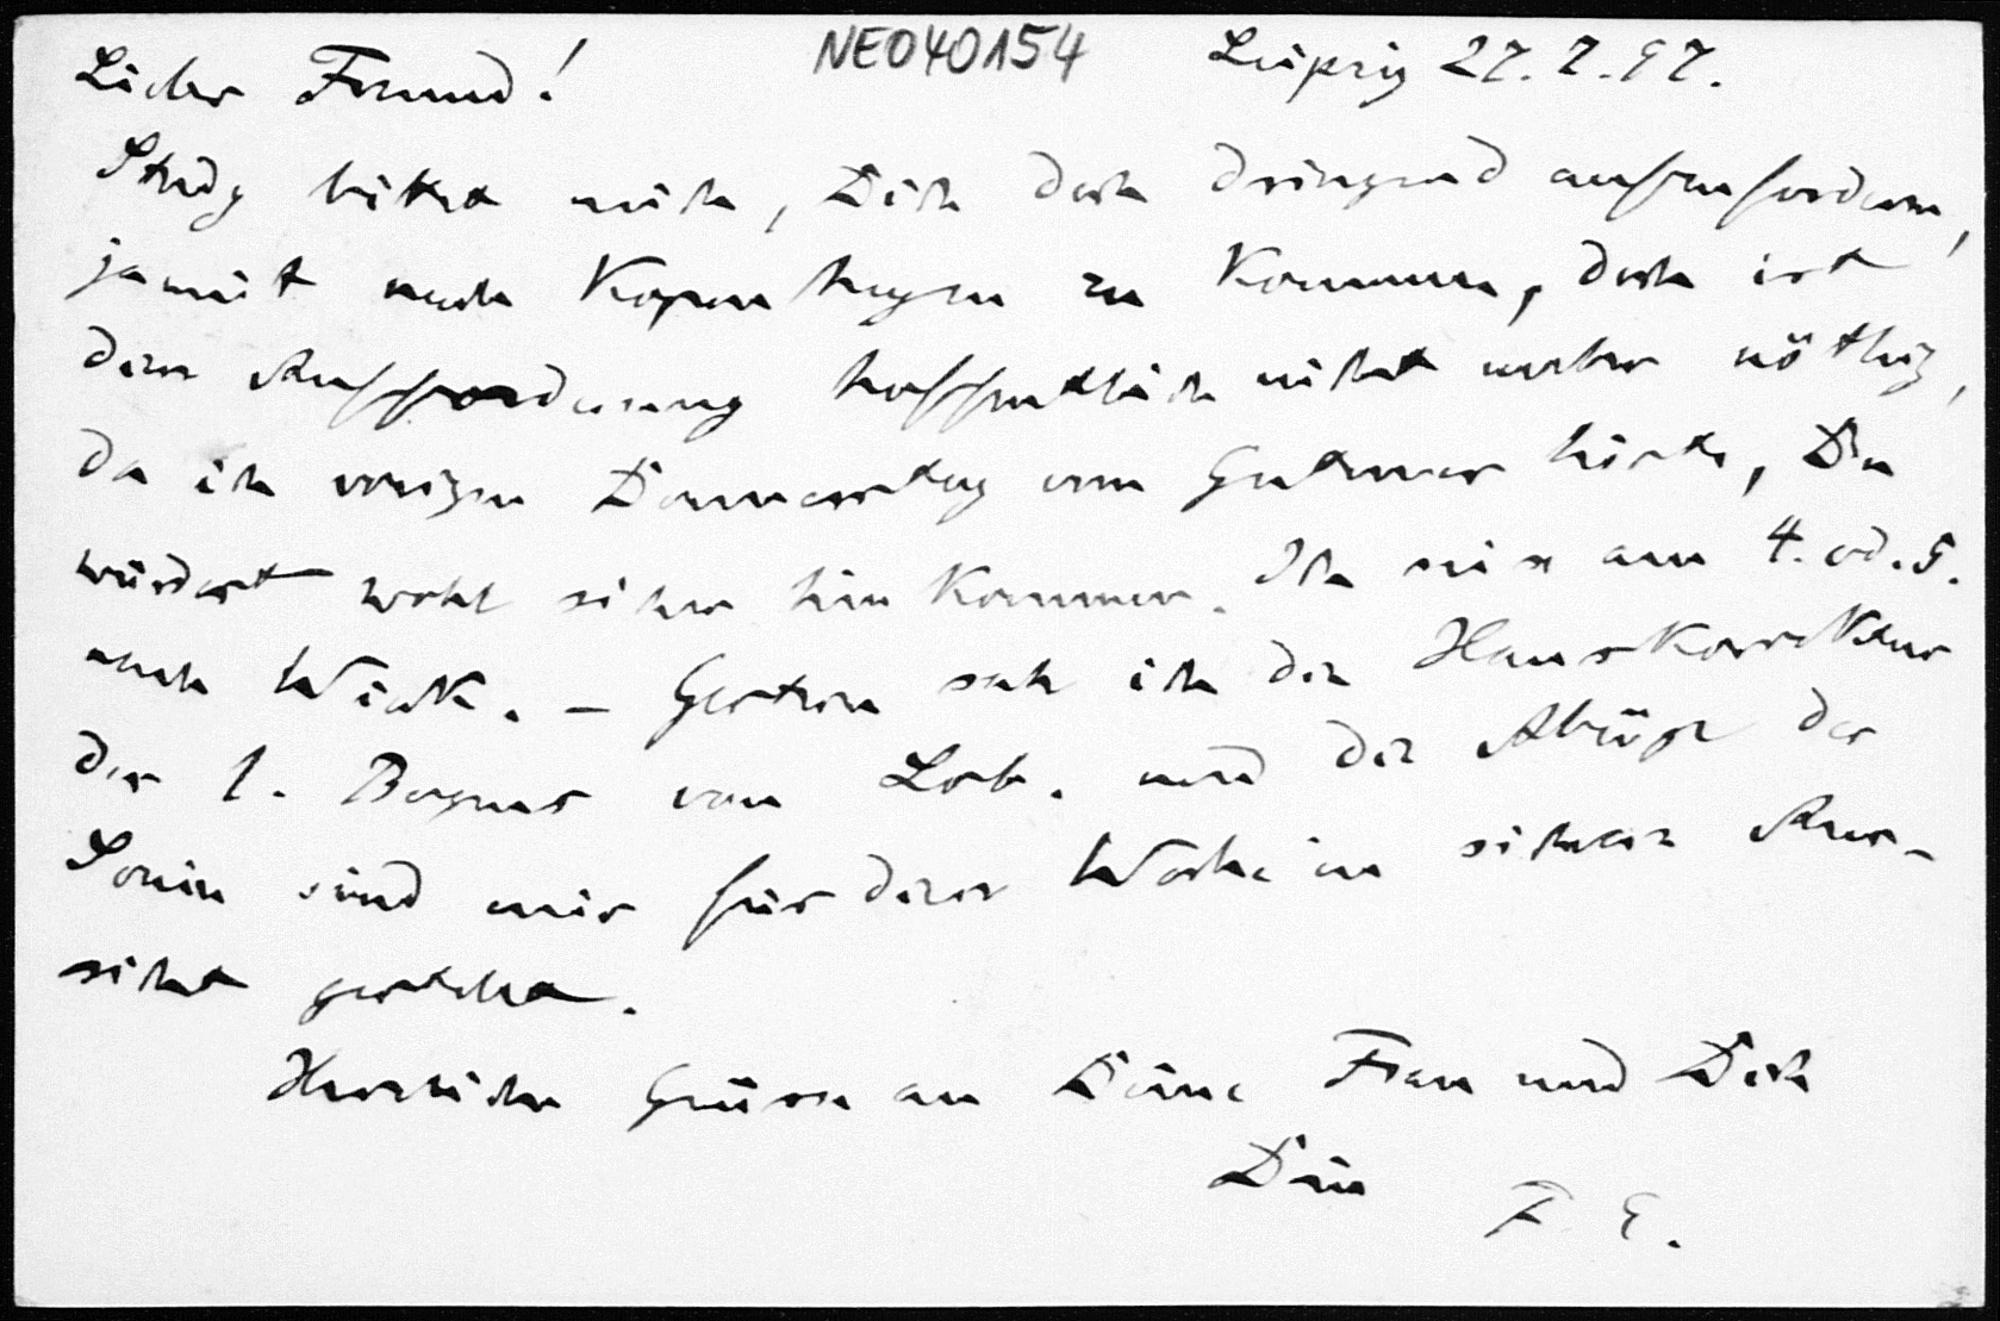 NEO40154
Leipzig 27.7.97.
Lieber Freund!
Study bittet mich, Dich doch dringend aufzufordern,
ja mit nach Kopenhagen zu kommen, doch ist
diese Aufforderung hoffentlich nicht mehr nöthig,
da ich vorigen Donnerstag von Gutzmer hörte, Du
würdest wohl sicher hin kommen. Ich reise am 4. od. 5.
nach Wiek. – Gestern sah ich die Hauskorrektur
des 1. Bogens von Lob. und die Abzüge der
Serien sind mir für diese Woche in sichere Aus-
sicht gestellt.
Herzliche Grüsse an Deine Frau und Dich
Dein F. E.